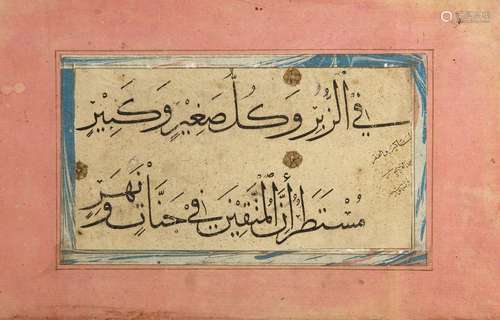 في الزُبُرِ وَكُلُّ صَغِيرٍ وَكَبِيرٍ
مُسْتَطَرٌ أنَّ المُتَّقِينَ في جَنَّاتٍ وَنَهَرٍ